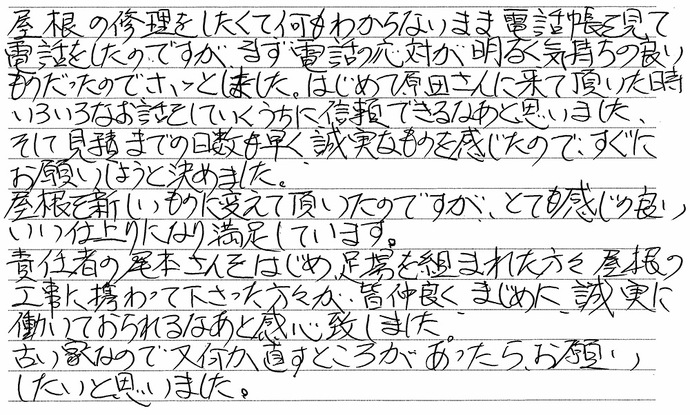 屋根の修理をしたくて何もわからないまま電話帳を見て
電話をしたのですが、まず電話の応対が明るく気持ちの良い
ものだったのでホッとしました。はじめて原田さんに来て頂いた時
いろいろなお話をしていくうちに信頼できるなあと思いました、
そして見積までの日数も早く、誠実なものを感じたので、すぐに
お願いしようと決めました。
屋根を新しいものに変えて頂いたのですが、とても感じの良い
いい仕上りになり満足しています。
責任者の尾本さんをはじめ、足場を組まれた方々、屋根の
工事に携わって下さった方々が、皆仲良く、まじめに、誠実に
働いておられるなあと感心致しました。
古い家なので又何か直すところがあったら、お願い
したいと思いました。